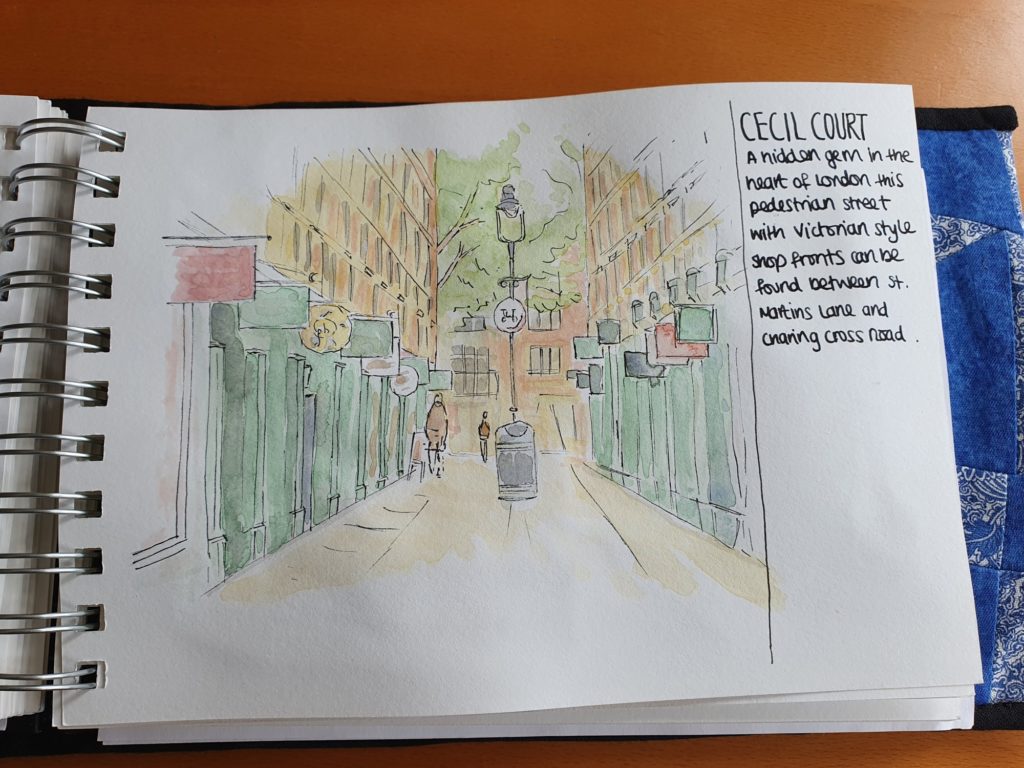 CECIL COURT
A hidden gem in the
heart of London this
pedestrian street
with Victorian style
shop fronts can be
found between St.
Martins Lane and
Charing Cross Road.